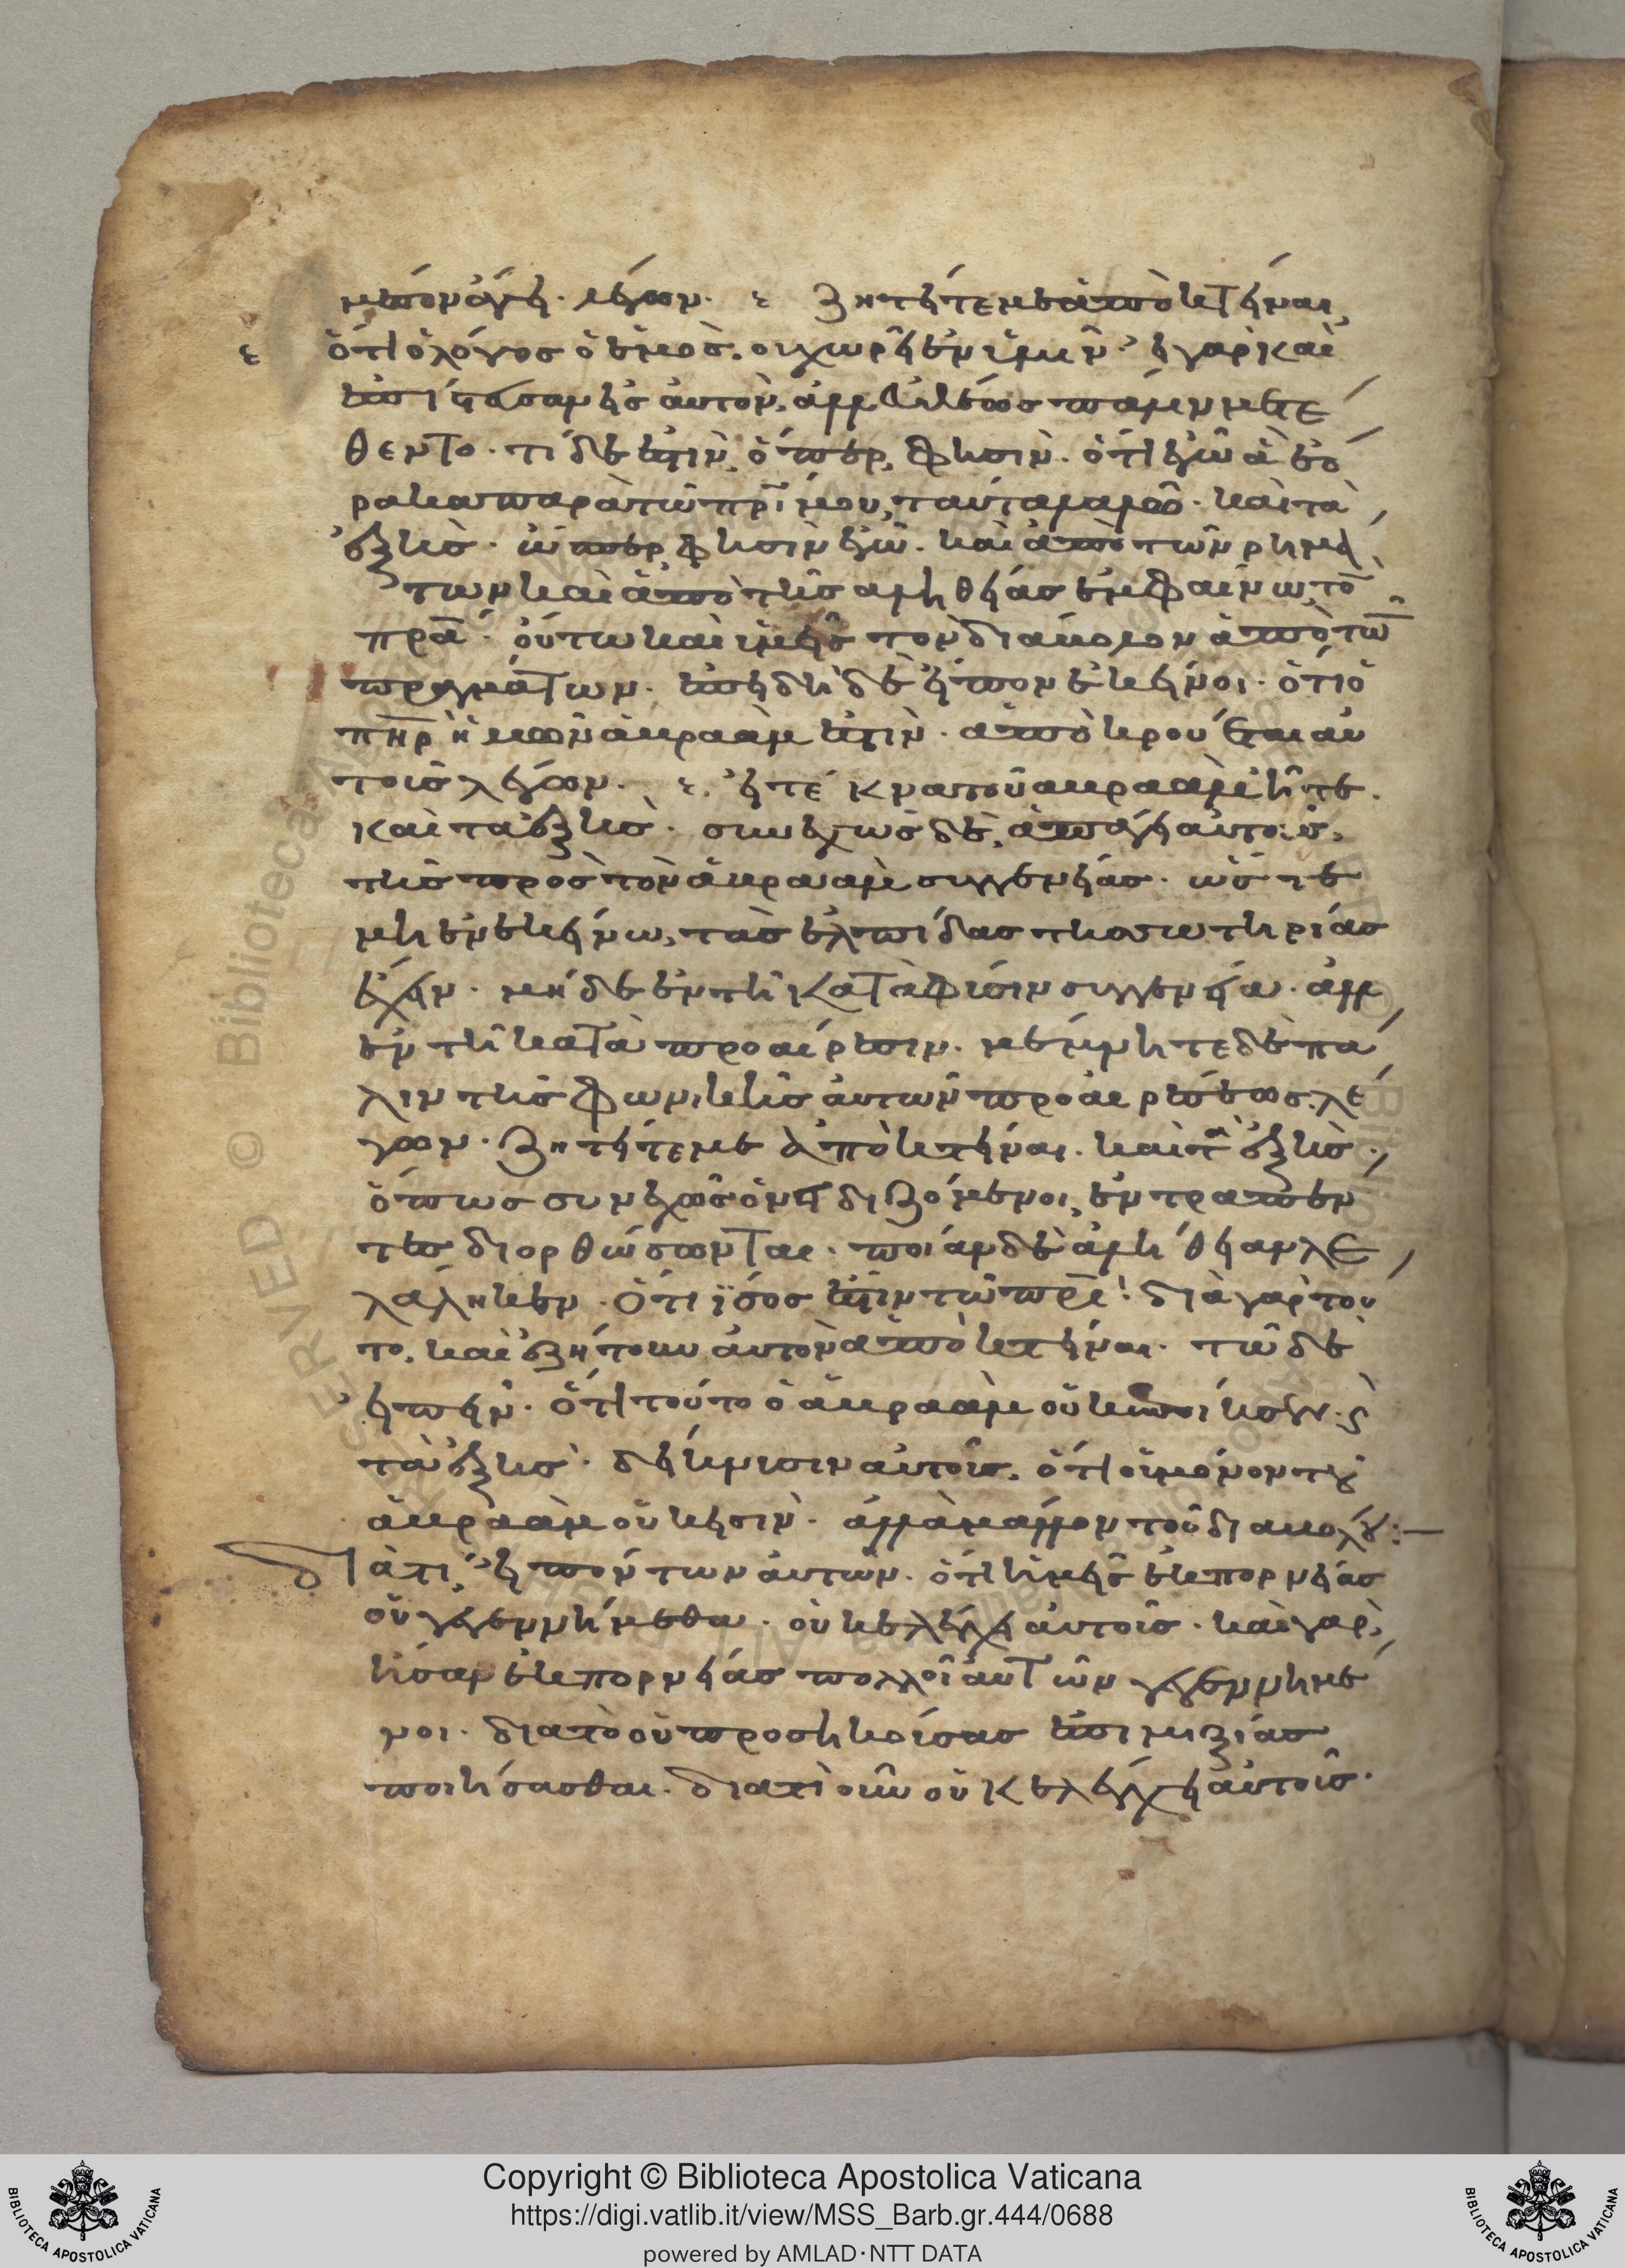 μέσον ἄγει. λέγων. ζητεῖτέ με ἀποκτεῖναι,
ὅτι ὁ λόγος ὁ ἐμὸς. οὐ χωρεῖ ἐν ὑμῖν· εἰ γὰρ καὶ
ἐπίστευσαν εἰς αὐτὸν, ἀλλ
θεντο. τί δέ ἐστιν, ὅπερ, φησὶν. ὅτι ἐγὼ ἃ ἑώ
ρακα παρὰ τῷ πρί μου, ταῦτα λαλῶ. καὶ τὰ
ἑξῆς. ὥσπερ φησὶν ἐγὼ. καὶ ἀπὸ τῶν ῥημά
των καὶ ἀπὸ τῆς ἀληθείας ἐμφαίνω, τὸ
πρα. οὕτω καὶ ὑμεῖς τὸν διάβολον ἀπὸ τῶν
πραγμάτων. ἐπειδὴ δὲ εἶπον ἐκεῖνοι. ὅτι ὁ
πηρ ἡμῶν ἀβραάμ ἐστιν. ἀποκρούεται αὐ
τοῖς λέγων. εἰ τέκνα τοῦ ἀβραὰμ ἦτε.
καὶ τὰ ἑξῆς. συνεχῶς δὲ, ἀπάγει αὐτοὺς,
τῆς πρὸς τὸν ἀβραὰμ συγγενείας. ὥστε
μὴ ἐν ἐκείνω, τὰς ἐλπίδας τῆς σωτηρίας
ἔχειν. μηδὲ ἐν τῆ κατὰ φύσιν συγγενεία. ἀλλ
ἐν τῆ κατὰ προαίρεσιν. μέμνηται δὲ πά
λιν τῆς φωνικῆς αὐτῶν προαιρέσεως. λέ
γων. ζητεῖτέ με ἀποκτεῖναι. καὶ τὰ ἑξῆς.
ὅπως συνεχῶς ὀνειδιζόμενοι, ἐντραπέν
τες διορθώσωνται. ποίαν δὲ ἀλήθειαν λε
λάληκεν. ὅτι ἴσος ἐστὶν τῷ πρι· διὰ γὰρ τοῦ
το. καὶ ἐζήτουν αὐτὸν ἀποκτεῖναι. τῷ δὲ
εἰπεῖν. ὅτι τοῦτο ὁ ἀβραὰμ οὐκ ἐποίησεν. καὶ
τὰ ἑξῆς. δείκνυσιν αὐτοῖς. ὅτι οὐ μόνον τοῦ
ἀβραὰμ οὐκ εἰσὶν. ἀλλὰ μᾶλλον τοῦ διαβόλου:—
διατί, εἰπόντων αὐτῶν. ὅτι ἡμεῖς ἐκ πορνείας
οὐ γεγεννήμεθα. οὐκ ἐλέγχει αὐτοῖς. καὶ γὰρ,
ἦσαν ἐκ πορνείας πολλοὶ αὐτῶν γεγεννημέ
νοι. διὰ τὸ οὐ προσηκούσας ἐπιμιξίας
ποιήσασθαι. διατί οὖν οὐκ ἐλέγχει αὐτοῖς.
Copyright © Biblioteca Apostolica Vaticana
https://digi.vatlib.it/view/MSS_Barb.gr.444/0688
powered by AMLAD·NTT DATA